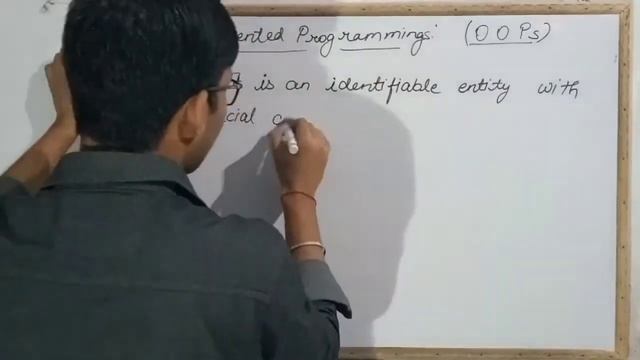 ented Programmings: (OOPs)
is an identifiable entity with
cial